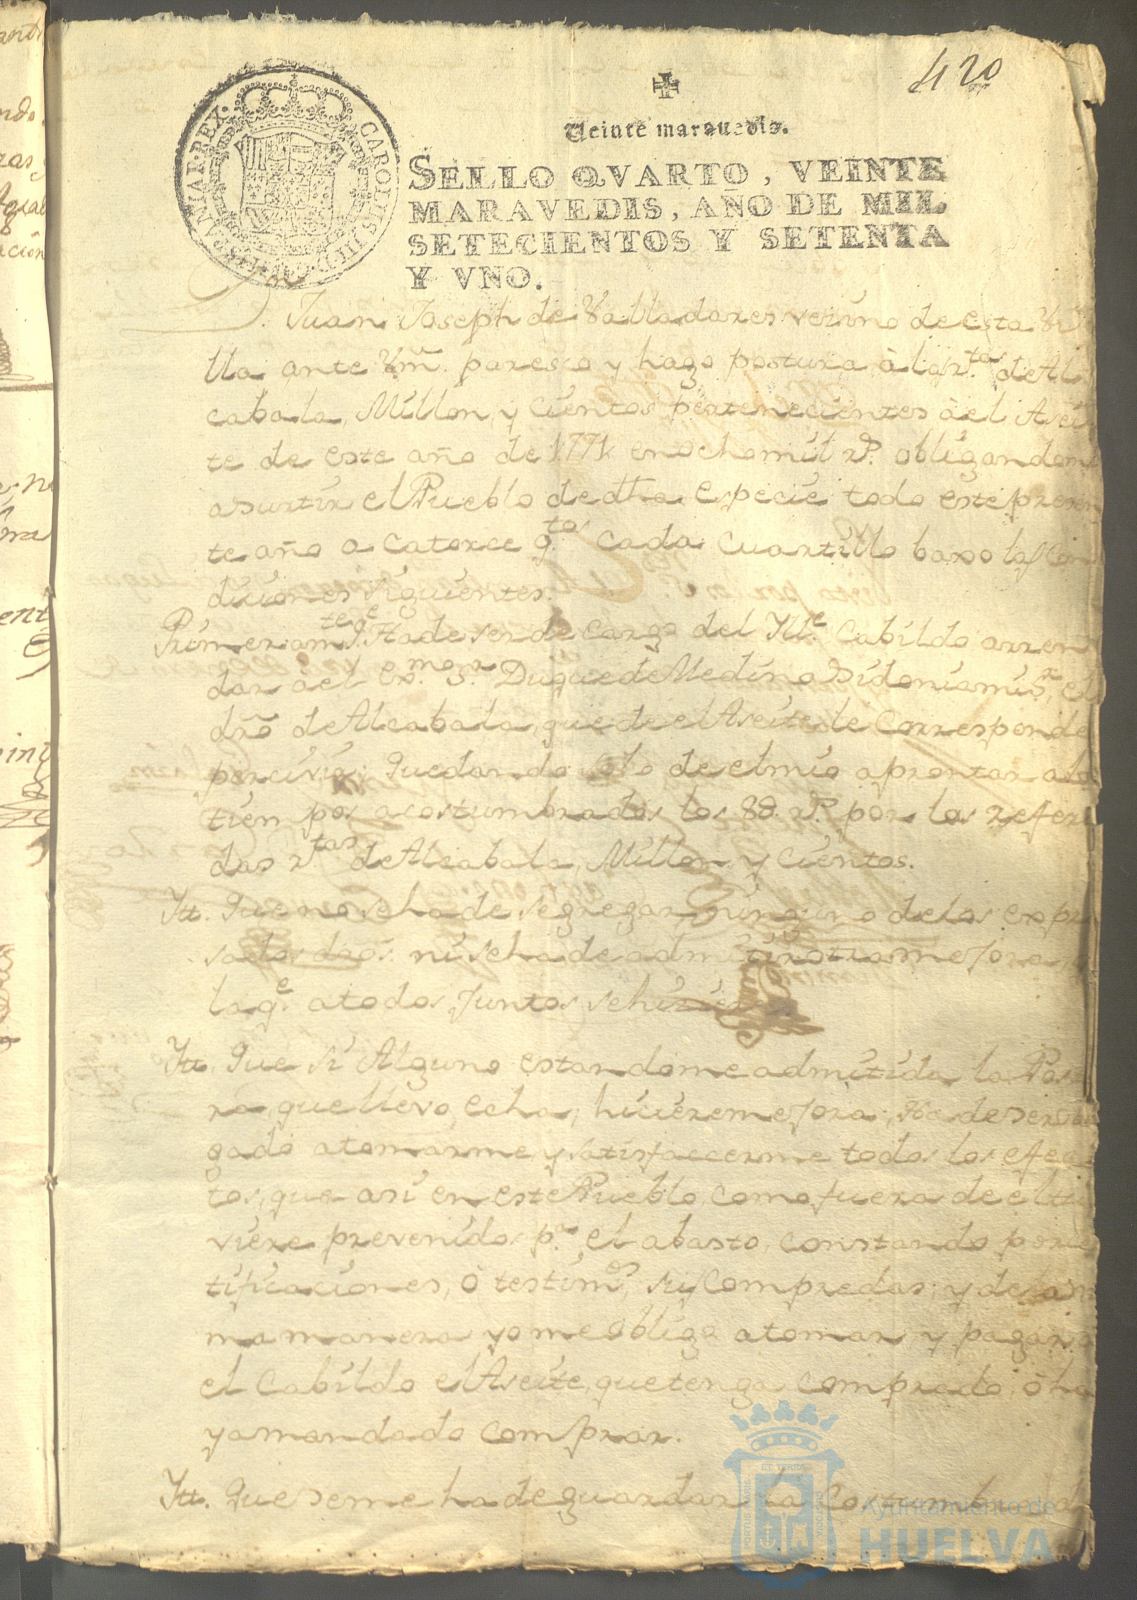 420
Veinte maravedis.
SELLO QVARTO, VEINTE
MARAVEDIS, AÑO DE MIL
SETECIENTOS Y SETENTA
Y VNO.
CAROLUS III D G HISP ET IND R
Juan Joseph de Valladares vecino de esta Vi
lla ante Vm. paresco y hago postura à la R.tas de Al
cabala, Millon, y Cientos pertenecientes à el Asei
te de este año de 1771. en ocho mil rP. obligandome
a surtir el Pueblo de dha especie todo este presen
te año a catorce q.tos cada Cuartillo baxo las Con
diciones siguientes.
Primeriam.te q.e Ha de ser de cargo del Ill.e Cabildo arren
dar à el ex.mo S.r Duque de Medina Sidonia mi S.r, el
dro de Alcabala, que de el Aseite le Corresponde
percivir; Quedando solo de el mio aprontar a los
tiempos acostumbrados los 88. rP. por las referi
das r.tas de Alcabala, Millon, y Cientos.
Ytt. Que no se ha de segregar ninguno de los expre
sados dros. ni se ha de admitir otra mejora,
la q.e a todos juntos se hiciere
Ytt. Que si Alguno estandome admitida la Pos
ra, que llevo echa, hiciere mejora; Ha de ser obli
gado a tomarme, y satisfaccerme todos los efec
tos, que asi en este Pueblo, como fuera de el tu
viere prevenidos p.a el abasto, constando por
tificaciones, ò testim.os sus Compredas; y de la mis
ma manera yo me obligo a tomar y pagar a
el Cabildo el Aseite, que tenga comprado, ò ha
ya mandado comprar.
Ytt. Que se me ha de guardar la Costumbre de
Ayuntamiento de
HUELVA